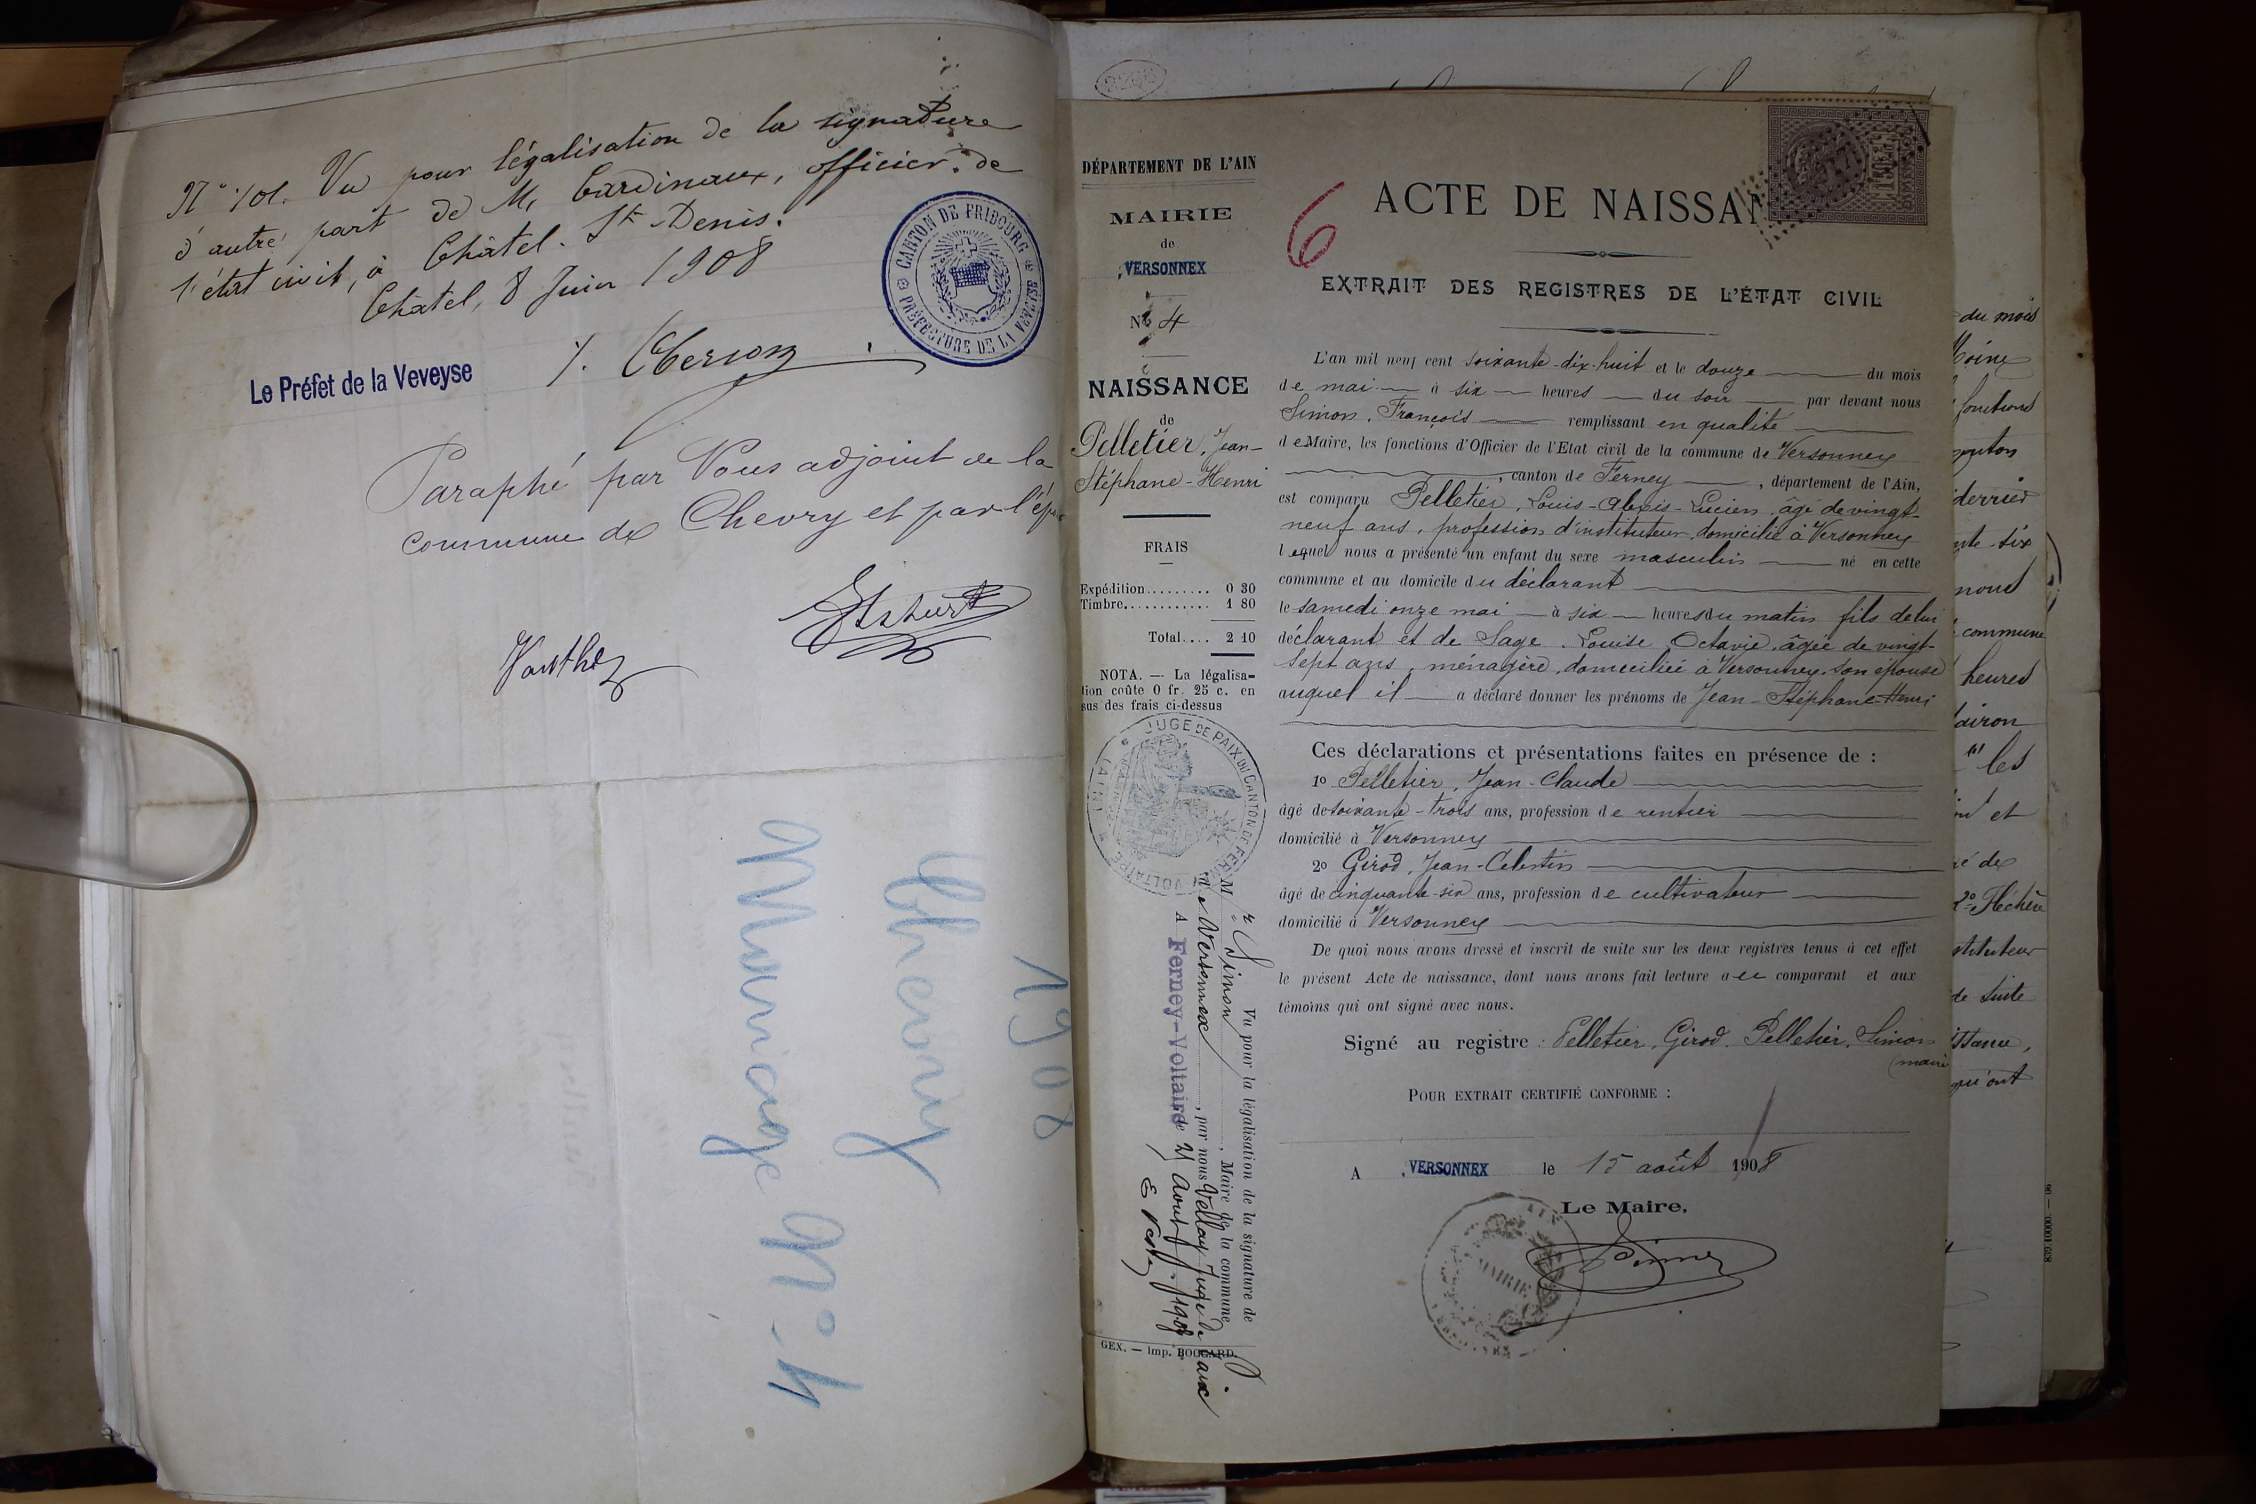 N° 101. Vu pour légalisation de la signature
d'autre part de M. Cardinaux, officier de
l'état civil, à Châtel-St-Denis.
Châtel, 8 Juin 1908
CANTON DE FRIBOURG
PRÉFECTURE DE LA VEVEYSE
Le Préfet de la Veveyse
Paraphé par Nous adjoint de la
commune de Chevry et par l'ép
1908
Chevry
Mariage N° 4
DÉPARTEMENT DE L'AIN
MAIRIE
de
VERSONNEX
N° 4
NAISSANCE
de
Pelletier, Jean-
Stéphane-Henri
FRAIS
Expédition......... 0 30
Timbre............ 1 80
Total.... 2 10
NOTA. — La légalisa-
tion coûte 0 fr. 25 c. en
sus des frais ci-dessus
JUGE DE PAIX DU CANTON DE FERNEY VOLTAIRE (AIN)
Vu pour la légalisation de la signature de
M r Simon, Maire de la commune
de Versonnex, par nous Vellay Juge de Paix
A Ferney-Voltaire le 21 Août 1908
GEX. — Imp. BOCCARD.
6
ACTE DE NAISSAN
EXTRAIT DES REGISTRES DE L'ÉTAT CIVIL
L'an mil neuf cent soixante-dix-huit et le douze du mois
de mai à six heures du soir par devant nous
Simon, François remplissant en qualité
de Maire, les fonctions d'Officier de l'Etat civil de la commune de Versonnex
, canton de Ferney, département de l'Ain,
est comparu Pelletier, Louis-Alexis-Lucien, âgé de vingt-
neuf ans, profession d'instituteur, domicilié à Versonnex
lequel nous a présenté un enfant du sexe masculin né en cette
commune et au domicile du déclarant
le samedi onze mai à six heures du matin fils de lui
déclarant et de Sage, Louise, Octavie, âgée de vingt-
sept ans, ménagère, domiciliée à Versonnex, son épouse
auquel il a déclaré donner les prénoms de Jean-Stéphane-Henri
Ces déclarations et présentations faites en présence de :
1° Pelletier, Jean-Claude
âgé de soixante-trois ans, profession de rentier
domicilié à Versonnex
2° Girod, Jean-Célestin
âgé de cinquante-six ans, profession de cultivateur
domicilié à Versonnex
De quoi nous avons dressé et inscrit de suite sur les deux registres tenus à cet effet
le présent Acte de naissance, dont nous avons fait lecture au comparant et aux
témoins qui ont signé avec nous.
Signé au registre : Pelletier, Girod, Pelletier, Simon
(maire
POUR EXTRAIT CERTIFIÉ CONFORME :
A VERSONNEX le 15 août 1908
Le Maire.
MAIRIE
Simon
du mois
fonctions
nous
commune
heures
les
et
de suite
qui ont